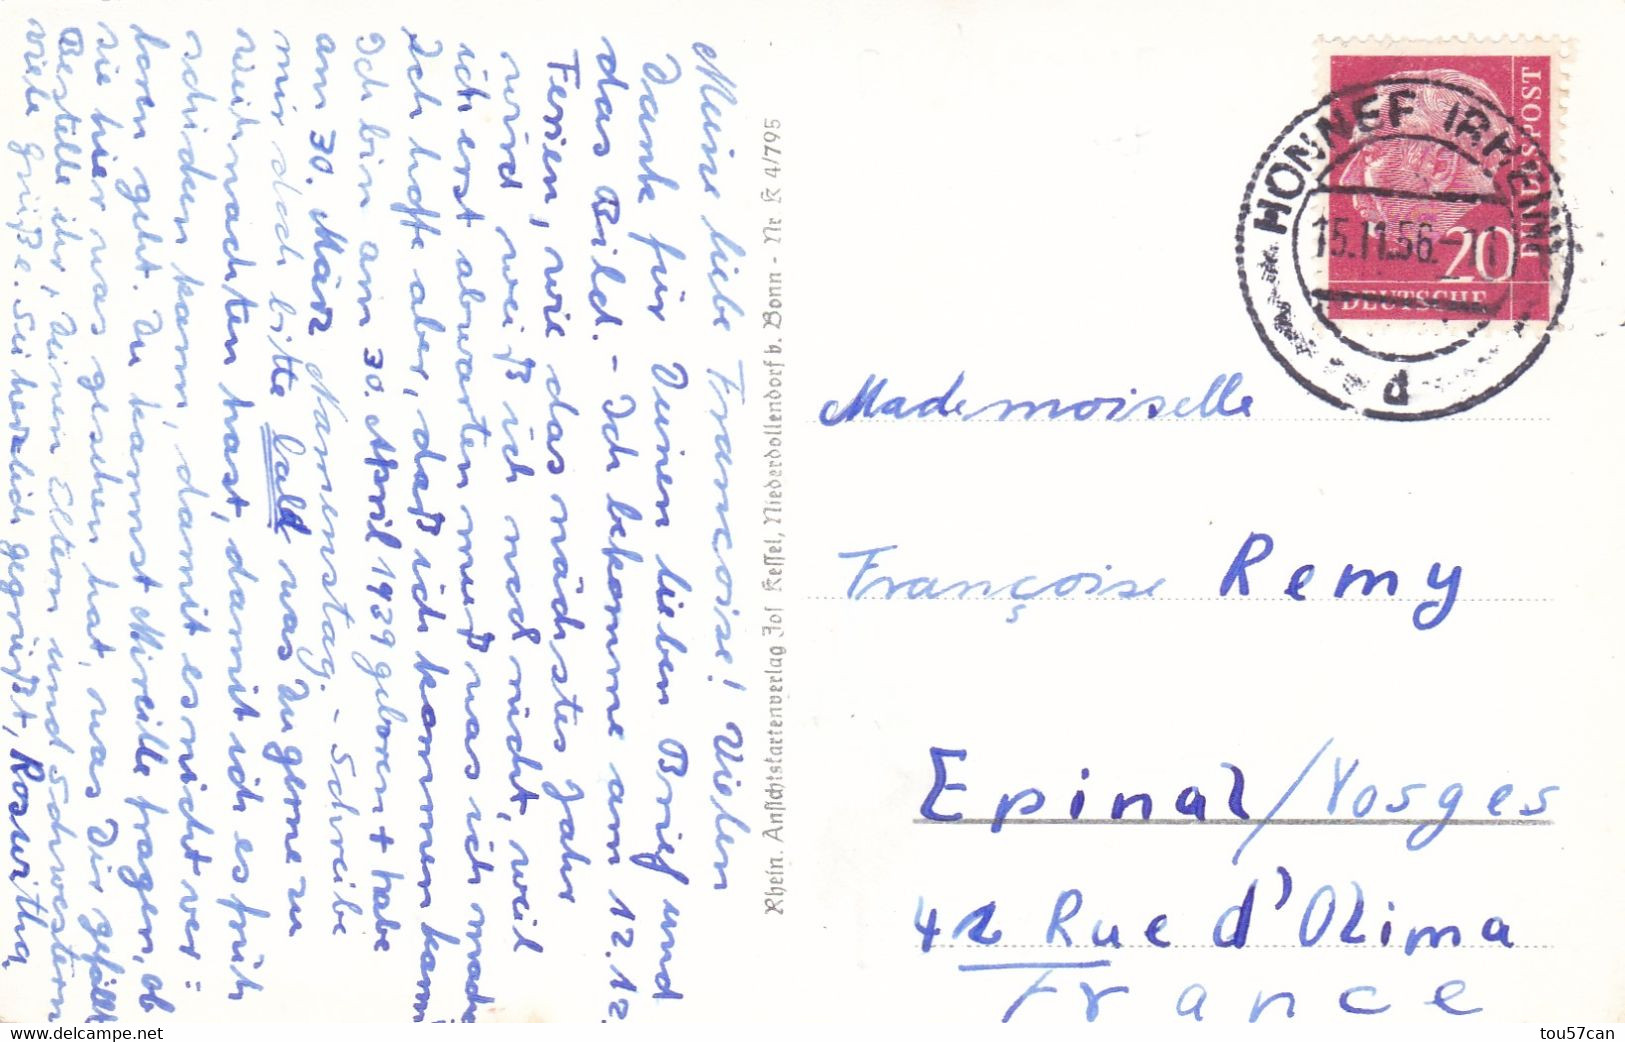 Meine liebe Francoise! Vielen
Dank für Deinen lieben Brief und
das Bild. - Ich bekomme am 12.12.
Ferien, wie das nächstes Jahr
wird weiß ich noch nicht, weil
ich erst abwarten muß was ich mache
Ich hoffe aber, daß ich kommen kann
Ich bin am 30. April 1939 geboren + habe
am 30. März Namenstag. - Schreibe
mir doch bitte bald was Du gerne zu
Weihnachten hast, damit ich es früh
schicken kann, damit es nicht ver=
loren geht. Du kannst Mireille fragen, ob
sie hier was gesehen hat, was Dir gefällt
Bestelle ihr, Deinen Eltern und Schwestern
viele Grüße. Sei herzlich gegrüßt, Roswitha
Rhein. Ansichtskartenverlag Jos Kessel, Niederdollendorf b. Bonn - Nr. K 4/795
HONNEF (RHEIN)
15.11.56.-11
d
DEUTSCHE
BUNDESPOST
20
Mademoiselle
Françoise Remy
Epinal/Vosges
42 Rue d'Olima
France
tou57can